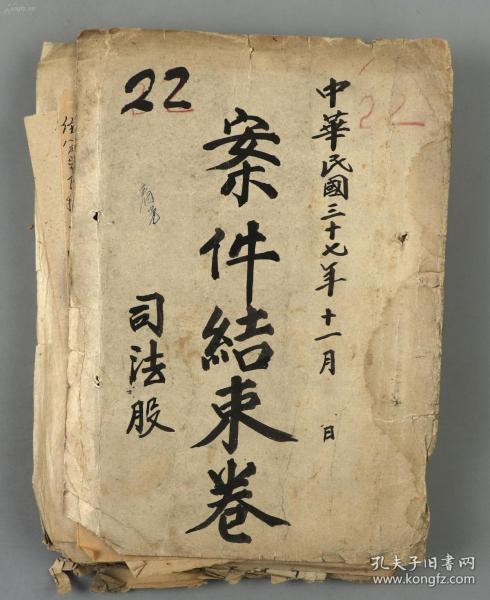 22
中華民國三十七年十一月 日
22
案件結束卷
司法股
孔夫子旧书网
www.kongfz.com